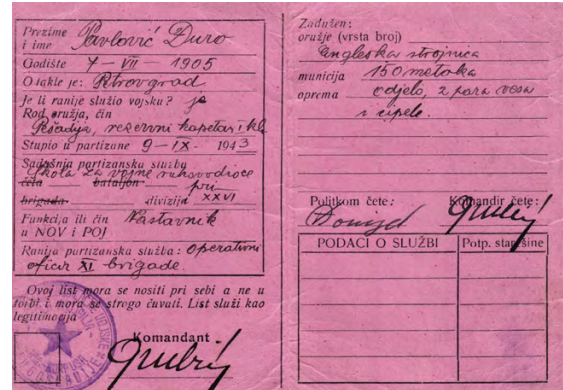 Prezime
i ime Pavlović Đuro
Godište 7 – VII – 1905
Otakle je: Petrovgrad
Je li ranije služio vojsku? je
Rod oružja, čin
Pešadija, rezervni kapetan I kl.
Stupio u partizane 9 – IX – 1943
Sadašnja partizanska služba
Škola za vojne rukovodioce
četa bataljon pri
brigada divizija XXVI
Funkcija ili čin Nastavnik
u NOV i POJ
Ranija partizanska služba: Operativni
oficir XI brigade.
Ovaj list mora se nositi pri sebi a ne u
torbi i mora se strogo čuvati. List služi kao
legitimacija
Komandant
Zadužen:
oružje (vrsta broj)
Engleska strojnica
municija 150 metaka
oprema odjelo, 2 para vesa
i cipele.
Politkom čete: Komandir čete:
PODACI O SLUŽBI Potp. starješine